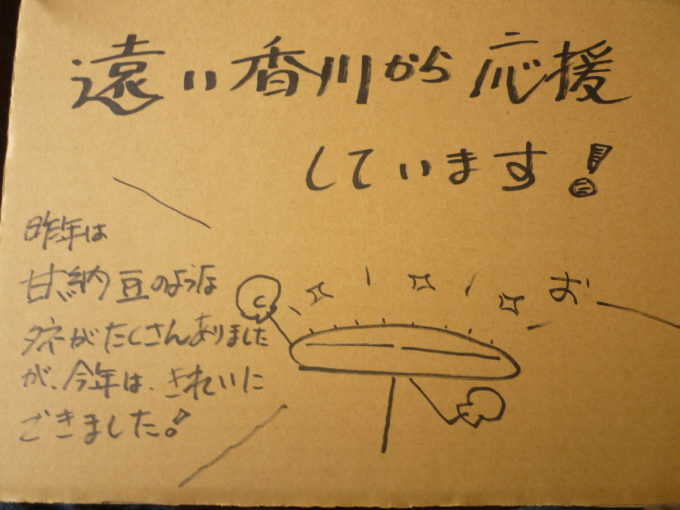 遠い香川から応援
しています!
昨年は
甘納豆のような
タネがたくさんありました
が、今年は、きれいに
できました!
お